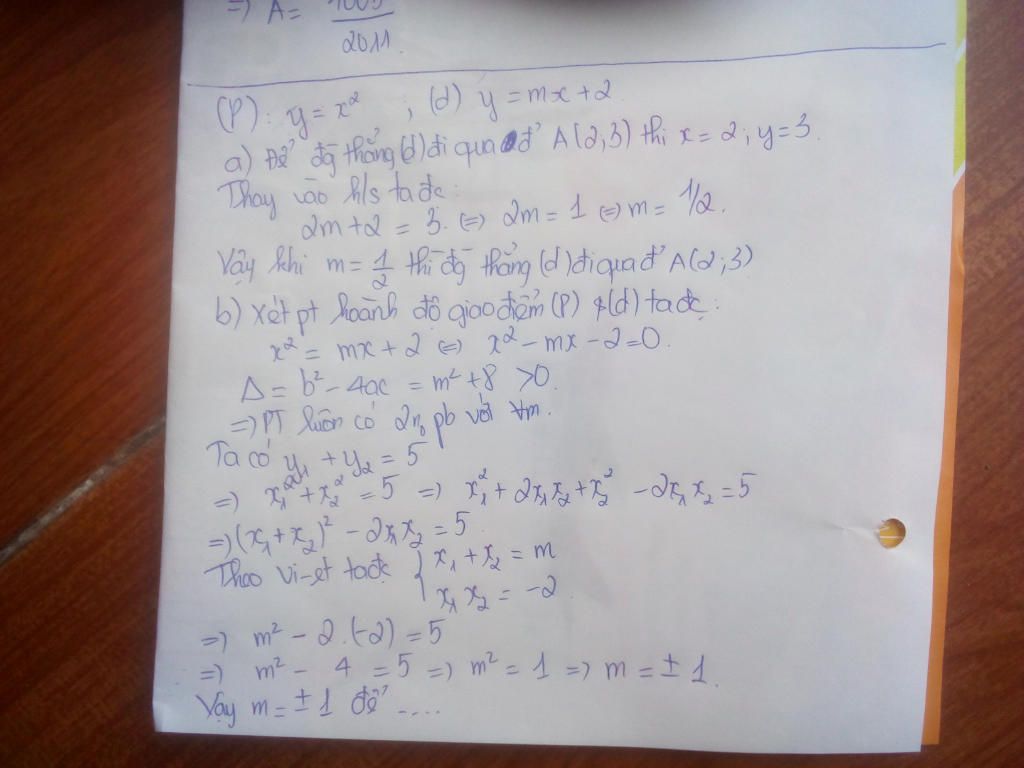 =) A = 1005/2011.
(P): y = x² ; (d) y = mx + 2
a) Để đg thẳng (d) đi qua đ' A(2;3) thì x = 2; y = 3.
Thay vào h/s ta đc:
2m + 2 = 3. (=) 2m = 1 (=) m = 1/2.
Vậy khi m = 1/2 thì đg thẳng (d) đi qua đ' A(2;3)
b) Xét pt hoành độ giao điểm (P) & (d) ta đc:
x² = mx + 2 (=) x² - mx - 2 = 0.
Δ = b² - 4ac = m² + 8 > 0.
=) PT luôn có 2n₀ pb với ∀m.
Ta có y₁ + y₂ = 5
=) x₁² + x₂² = 5 =) x₁² + 2x₁x₂ + x₂² - 2x₁x₂ = 5
=) (x₁ + x₂)² - 2x₁x₂ = 5
Theo vi-et ta đc { x₁ + x₂ = m
x₁x₂ = -2.
=) m² - 2.(-2) = 5
=) m² - 4 = 5 =) m² = 1 =) m = ± 1.
Vậy m = ± 1 để ....